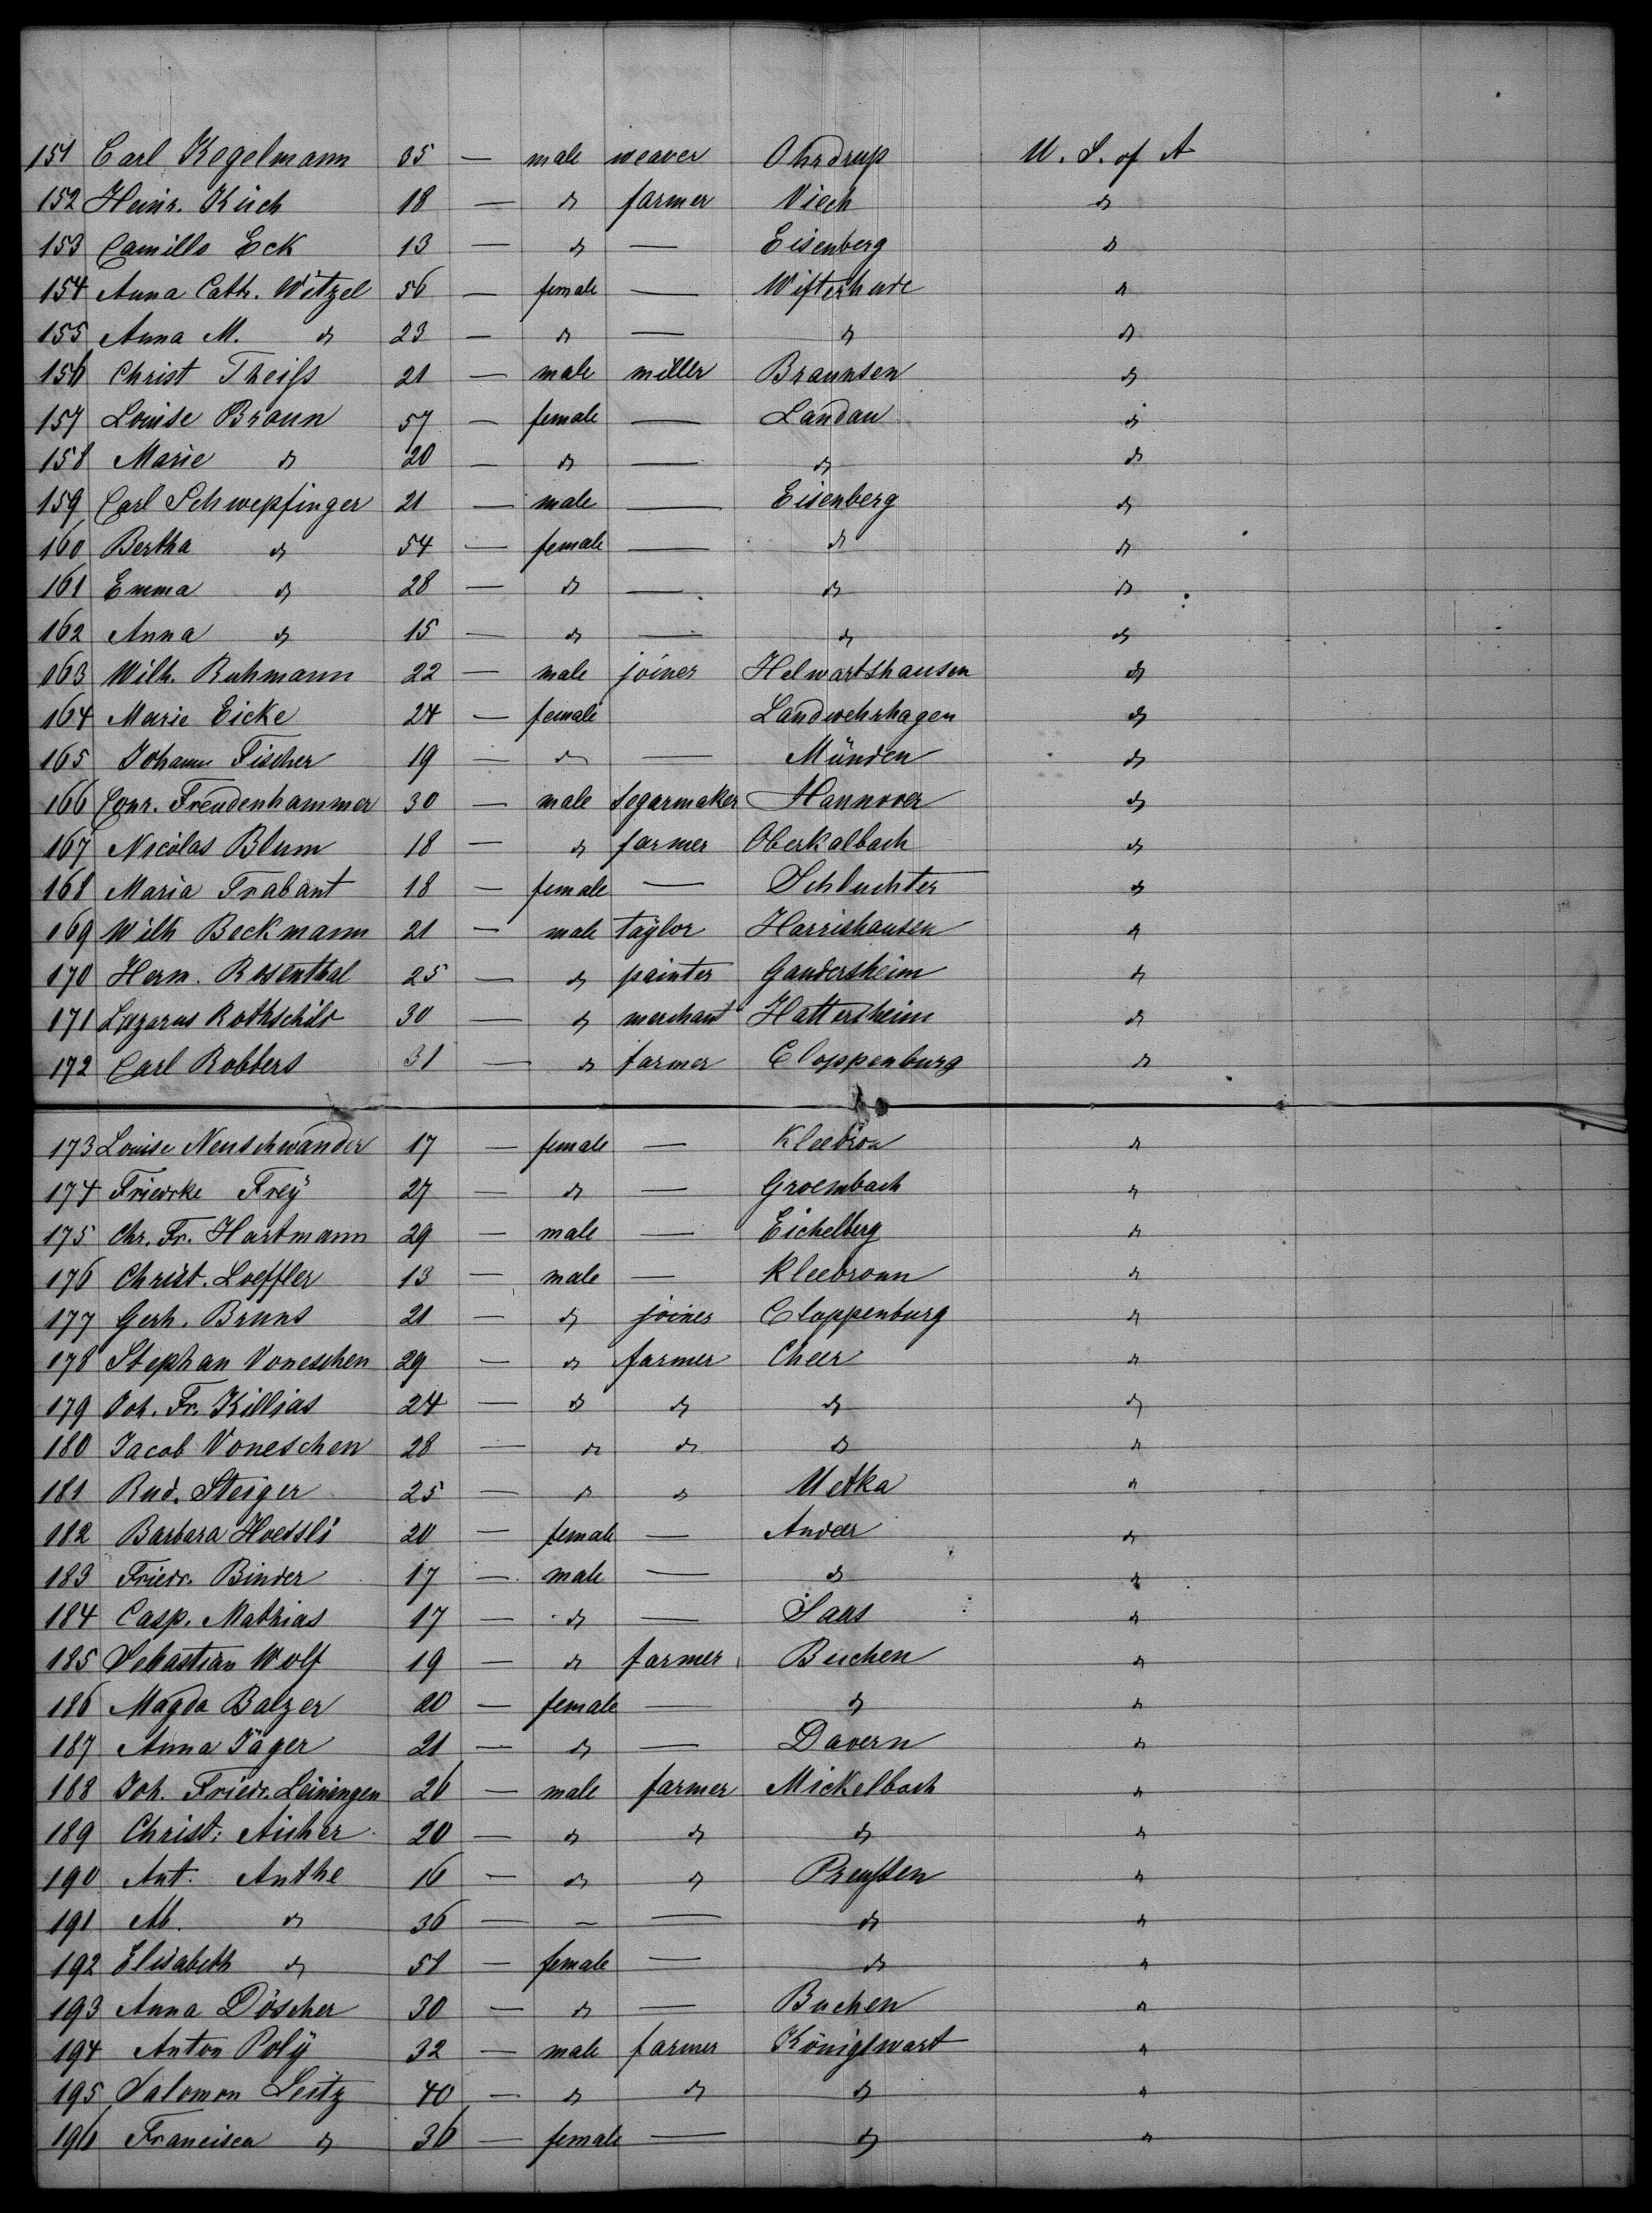 151 Carl Kegelmann 35 — male weaver Ohrdrup U. S. of A
152 Heinr. Küch 18 — " farmer Viech "
153 Camillo Eck 13 — " — Eisenberg "
154 Anna Cath. Witzel 56 — female — Wifterhude "
155 Anna M. " 23 — " — " "
156 Christ Theifs 21 — male miller Braunsen "
157 Louise Braun 57 — female — Landau "
158 Marie " 20 — " — " "
159 Carl Schwepfinger 21 — male — Eisenberg "
160 Bertha " 54 — female — " "
161 Emma " 28 — " — " "
162 Anna " 15 — " — " "
163 Wilh. Ruhmann 22 — male joiner Helwartshausen "
164 Marie Eicke 24 — female Landwehrhagen "
165 Johanne Fischer 19 — " — Münden "
166 Conr. Freudenhammer 30 — male segarmaker Hannover "
167 Nicolas Blum 18 — " farmer Oberkalbach "
168 Maria Trabant 18 — female — Schluchter "
169 Wilh Beckmann 21 — male taylor Harrishausen "
170 Herm. Rosenthal 25 — " painter Gandersheim "
171 Lazarus Rothschild 30 — " merchant Hattersheim "
172 Carl Robbers 31 — " farmer Cloppenburg "
173 Louise Neuschwander 17 — female — Kleebron "
174 Friedrke Frey 27 — " — Groembach "
175 Chr. Fr. Hartmann 29 — male — Eichelberg "
176 Christ. Loeffler 13 — male — Kleebronn "
177 Gerh. Bruns 21 — " joiner Cloppenburg "
178 Stephan Voneschen 29 — " farmer Cheer "
179 Joh. Fr. Killias 24 — " " " "
180 Jacob Voneschen 28 — " " " "
181 Rud. Steiger 25 — " " Uetka "
182 Barbara Hoessli 20 — female — Andeer "
183 Friedr. Binder 17 — male — " "
184 Casp. Mathias 17 — " — Saas "
185 Sebastian Wolf 19 — " farmer Buchen "
186 Magda Balzer 20 — female — " "
187 Anna Jäger 21 — " — Davern "
188 Joh. Friedr. Leiningen 26 — male farmer Mickelbach "
189 Christ: Aicher 20 — " " " "
190 Ant. Anthe 16 — " " Preufsen "
191 M. " 36 — — — " "
192 Elisabeth " 58 — female — " "
193 Anna Döscher 30 — " — Buchen "
194 Anton Polÿ 32 — male farmer Königswart "
195 Salomon Leitz 40 — " " " "
196 Francisca " 36 — female — " "